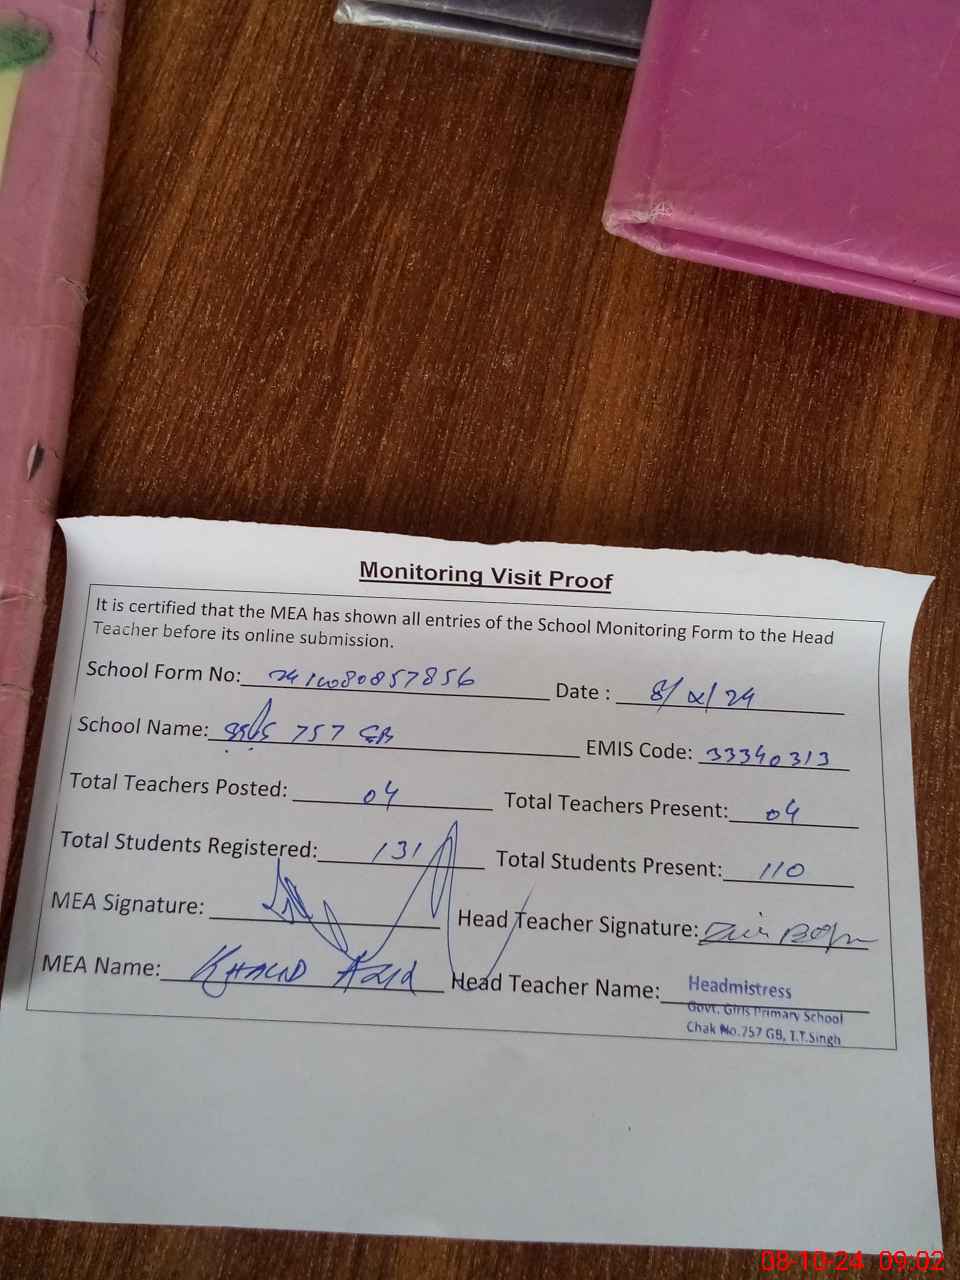 Monitoring Visit Proof
It is certified that the MEA has shown all entries of the School Monitoring Form to the Head
Teacher before its online submission.
School Form No: Date : 8/ /24
School Name: 757 GB EMIS Code: 33340313
Total Teachers Posted: 04 Total Teachers Present: 04
Total Students Registered: 131 Total Students Present: 110
MEA Signature: Head Teacher Signature:
MEA Name: KHALID Head Teacher Name: Headmistress
Govt. Girls Primary School
Chak No.757 GB, T.T.Singh
08-10-24 09:02